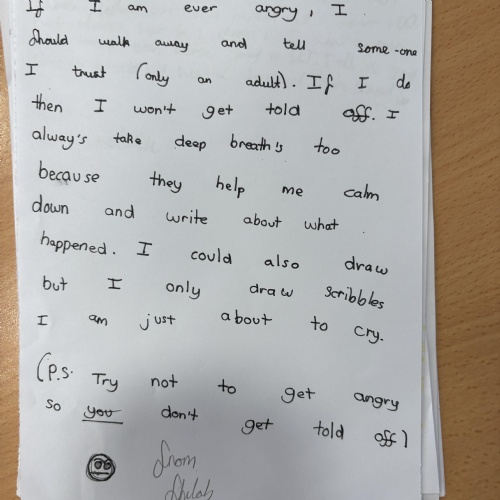 If I am ever angry, I
should walk away and tell some-one
I trust (only an adult). If I do
then I won't get told off. I
alway's take deep breath's too
because they help me calm
down and write about what
happened. I could also draw
but I only draw scribbles
I am just about to cry.
(P.S. Try not to get angry
so you don't get told off)
from